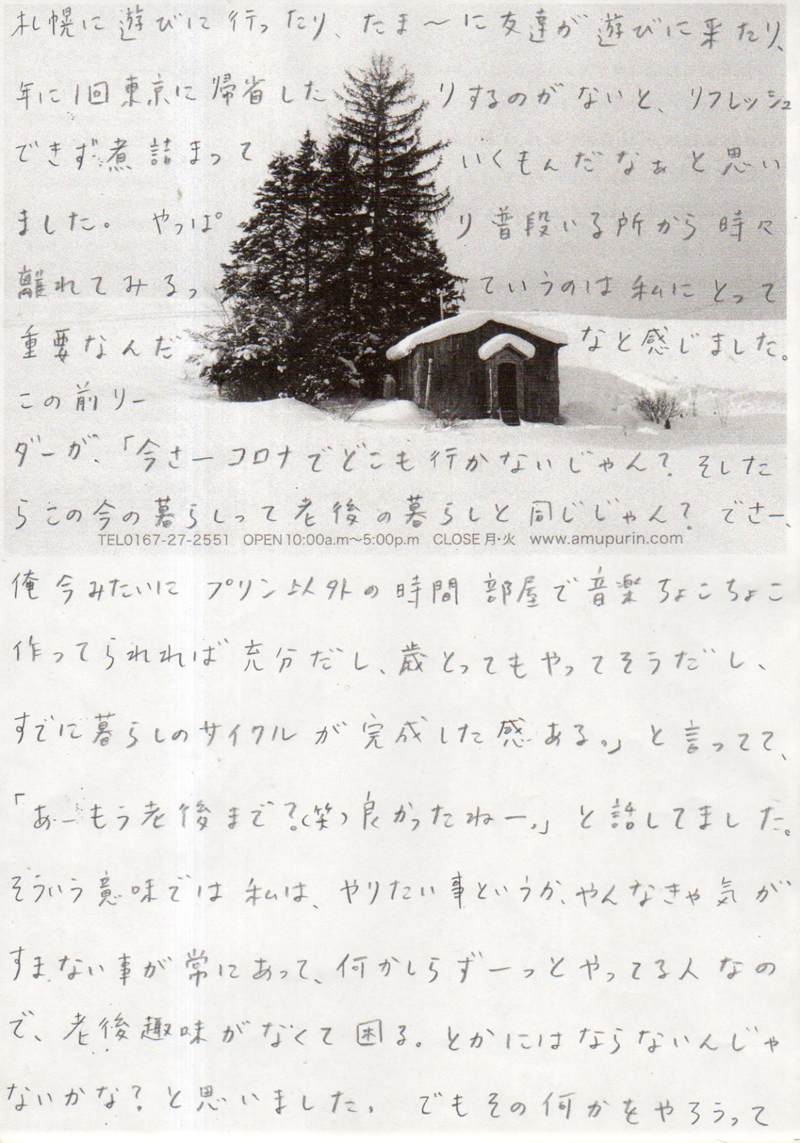 札幌に遊びに行ったり、たま～に友達が遊びに来たり、
年に1回東京に帰省したりするのがないと、リフレッシュ
できず煮詰まっていくもんだなぁと思い
ました。 やっぱり普段いる所から時々
離れてみるっていうのは私にとって
重要なんだなと感じました。
この前リー
ダーが、「今さーコロナでどこも行かないじゃん？そした
らこの今の暮らしって老後の暮らしと同じじゃん？でさー、
TEL0167-27-2551 OPEN10:00a.m〜5:00p.m CLOSE 月・火 www.amupurin.com
俺今みたいに プリン以外の時間 部屋で音楽ちょこちょこ
作ってられれば充分だし、歳とってもやってそうだし、
すでに暮らしのサイクルが完成した感ある。」と言ってて、
「あーもう老後まで？(笑)良かったねー。」と話してました。
そういう意味では私は、やりたい事というか、やんなきゃ気が
すまない事が常にあって、何かしらずーっとやってる人なの
で、老後趣味がなくて困る。とかにはならないんじゃ
ないかな？と思いました。 でもその何かをやろうって